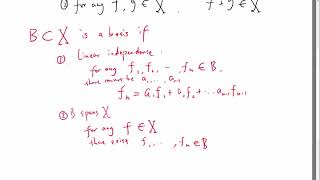 ② for any f, g ∈ X, f + g ∈ X
B ⊂ X is a basis if
① Linear independence:
for any f₁, f₂, ... fₙ ∈ B,
there must be a₁, ... aₙ₋₁
fₙ = a₁f₁ + a₂f₂ + ... aₙ₋₁fₙ₋₁
② B spans X
for any f ∈ X
there exist f₁, ..., fₙ ∈ B